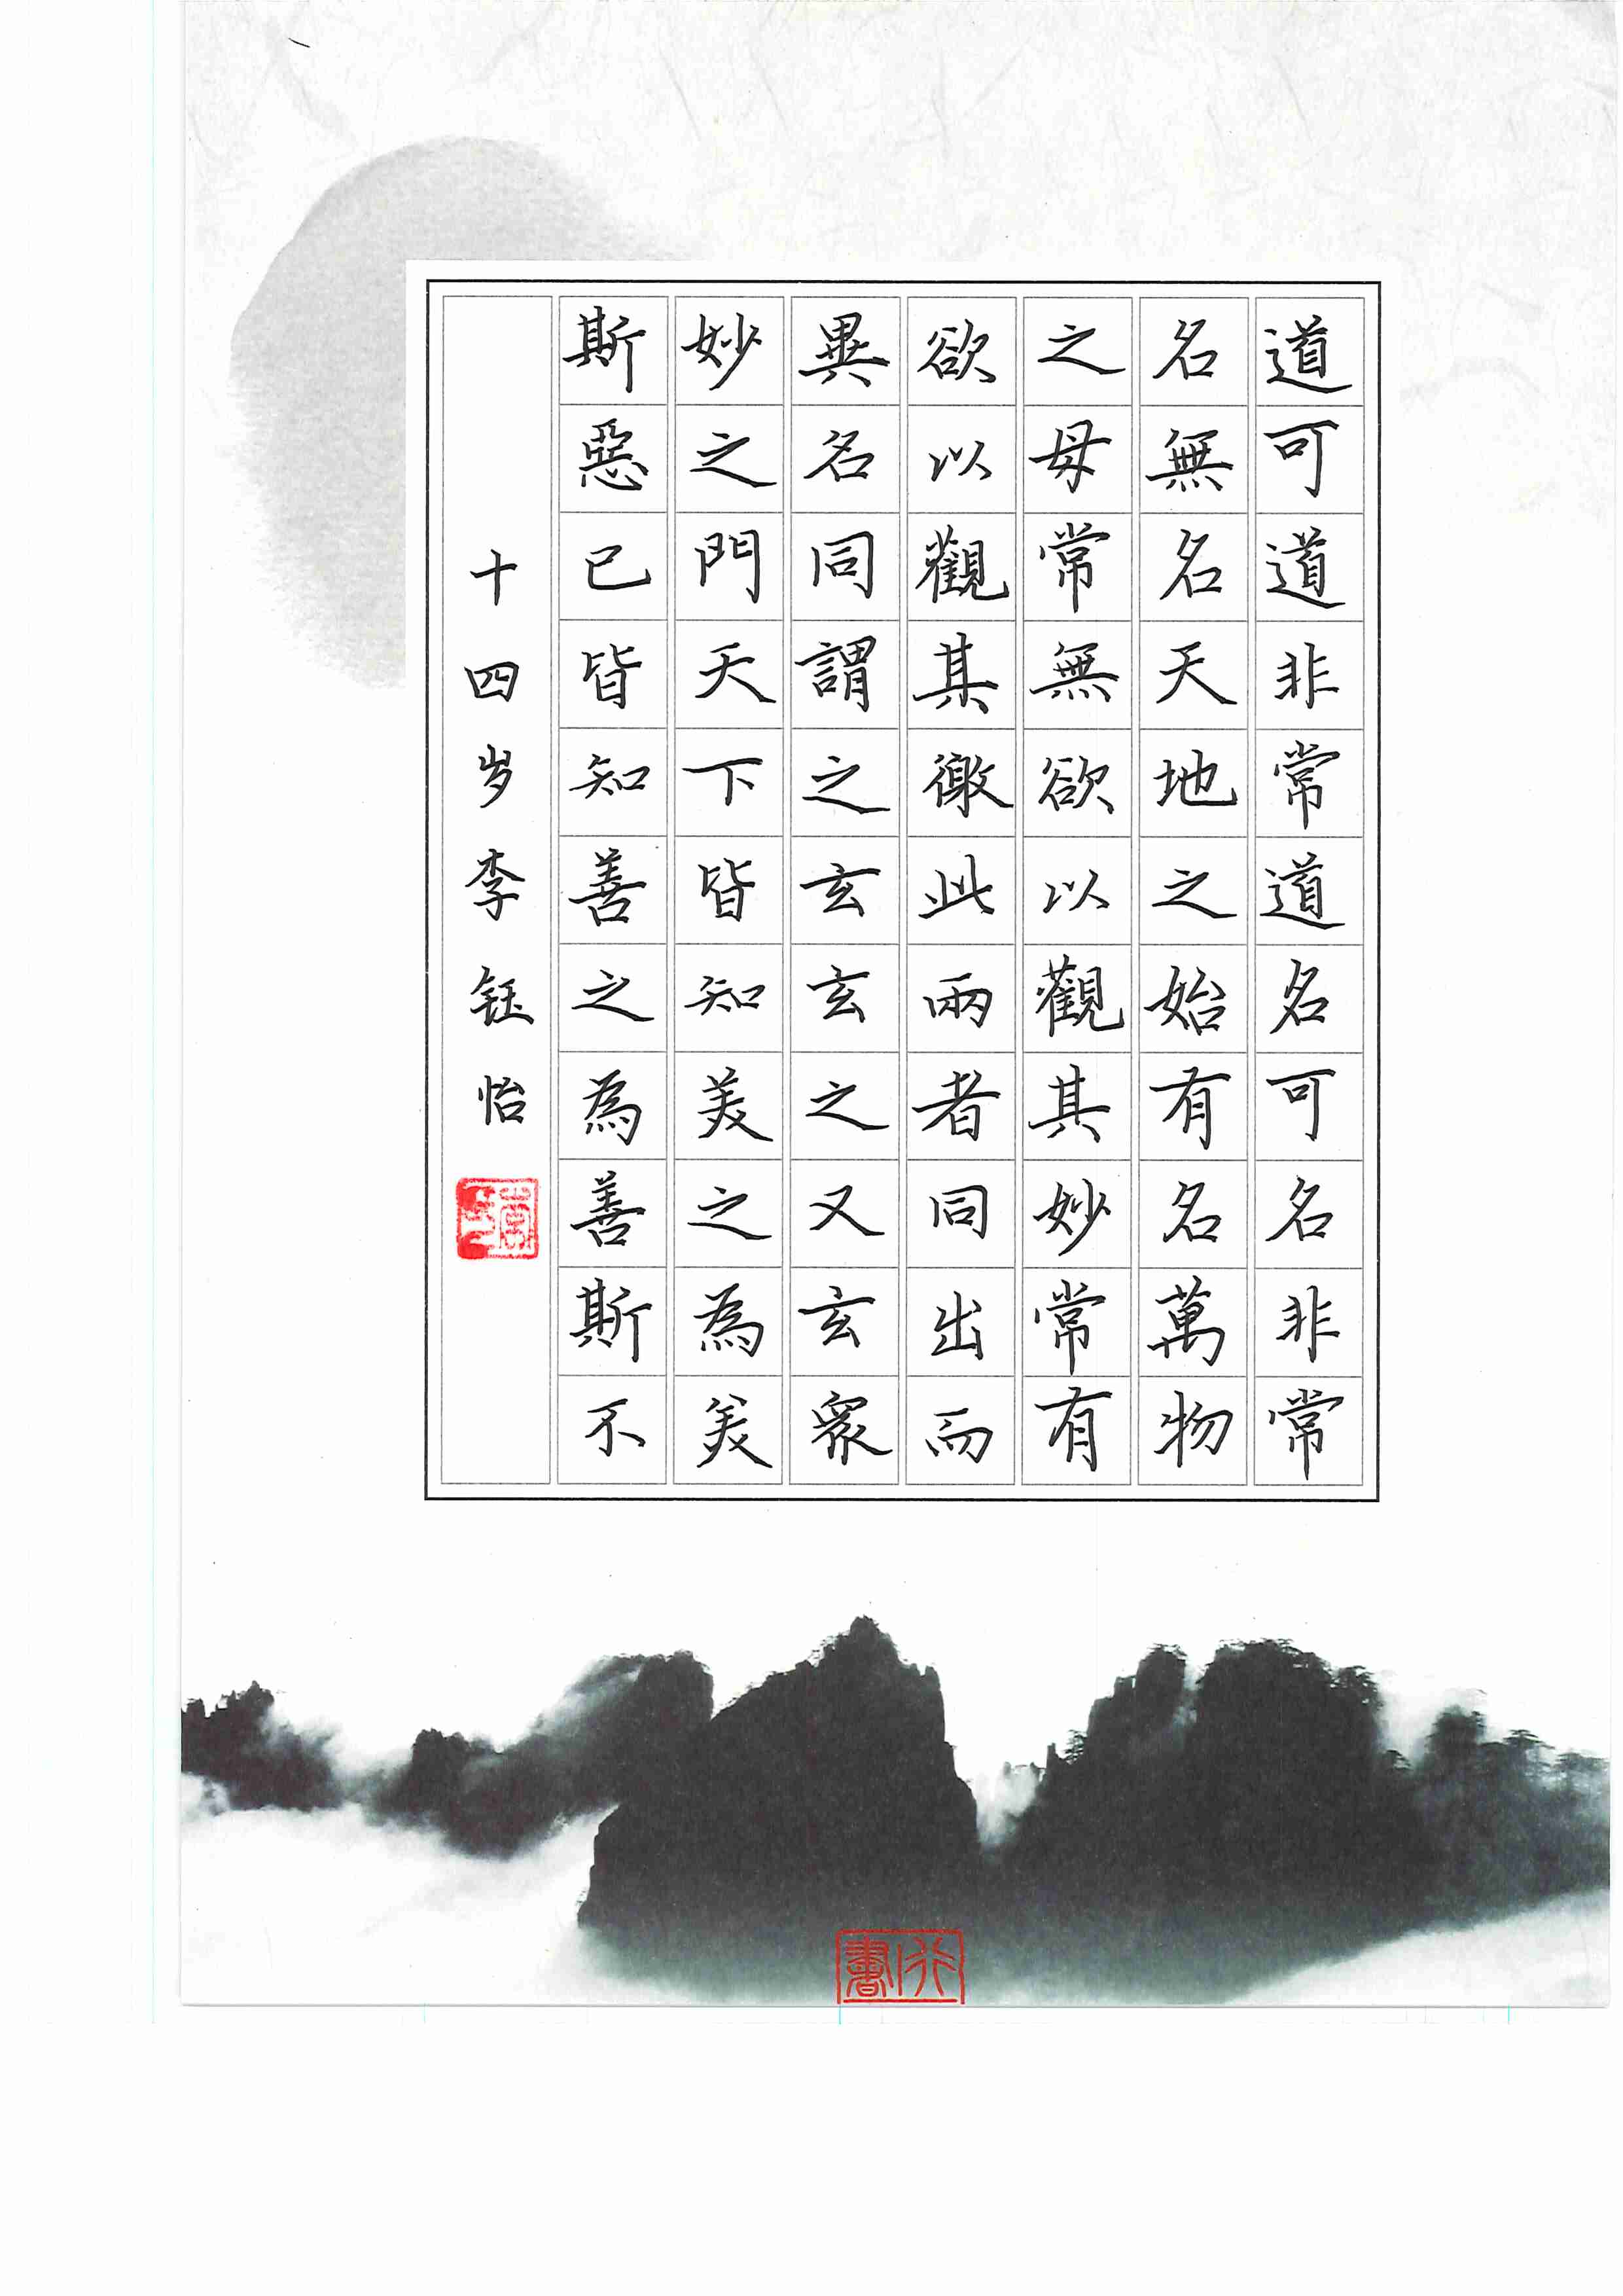 道可道非常道名可名非常
名無名天地之始有名萬物
之母常無欲以觀其妙常有
欲以觀其徼此兩者同出而
異名同謂之玄玄之又玄眾
妙之門天下皆知美之為美
斯惡已皆知善之為善斯不
十四岁李钰怡